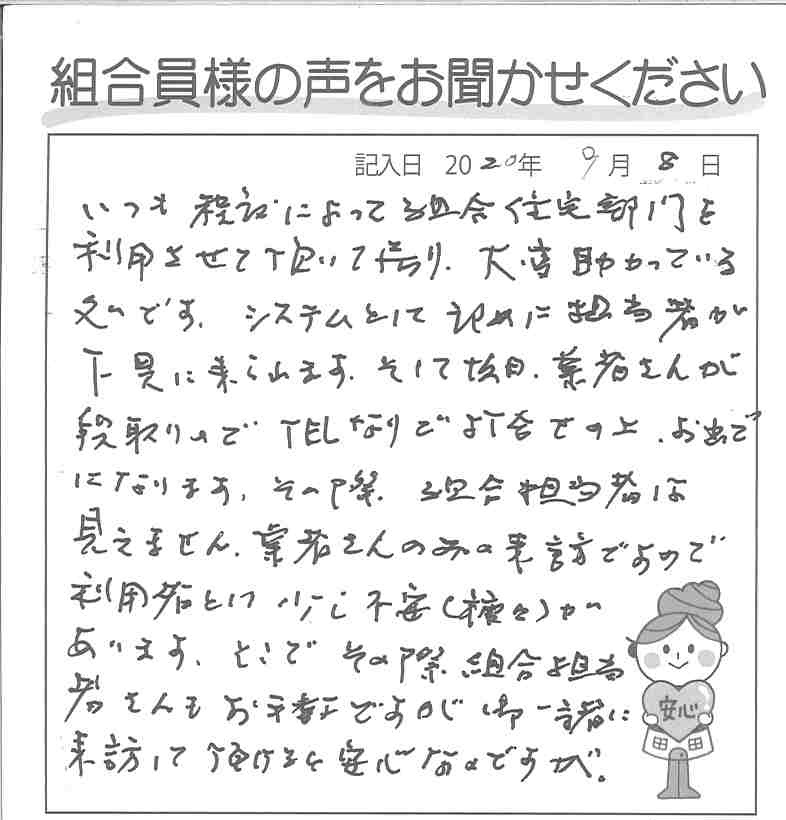 組合員様の声をお聞かせください
記入日 2020年 9月 8日
いつも 程度によって 組合住宅部門を
利用させて頂いて居り、大変助かっている
ので す。システムとして 初めに担当者が
下見に来られます。そして後日、業者さんが
段取りの で TELなりで 打合せの上、お出で
になります。その際 組合担当者は
見えません。業者さんのみの来訪ですので
利用者として 少し不安(種々)が
あります。そこで その際 組合担当
者さんも お手数ですが 御一諸に
来訪して 頂けると 安心なのですが。
安心